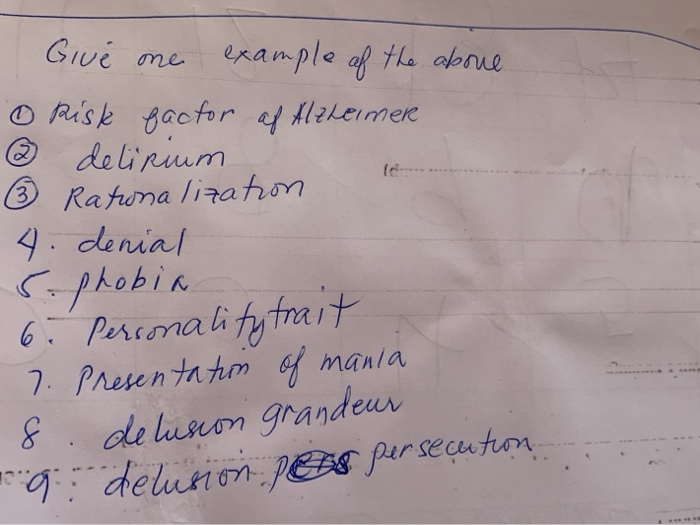 Give one example of the above
① Risk factor of Alzheimer
② delirium
③ Rationalization
4. denial
5. phobia
6. Personality trait
7. Presentation of mania
8. delusion grandeur
9. delusion persecution